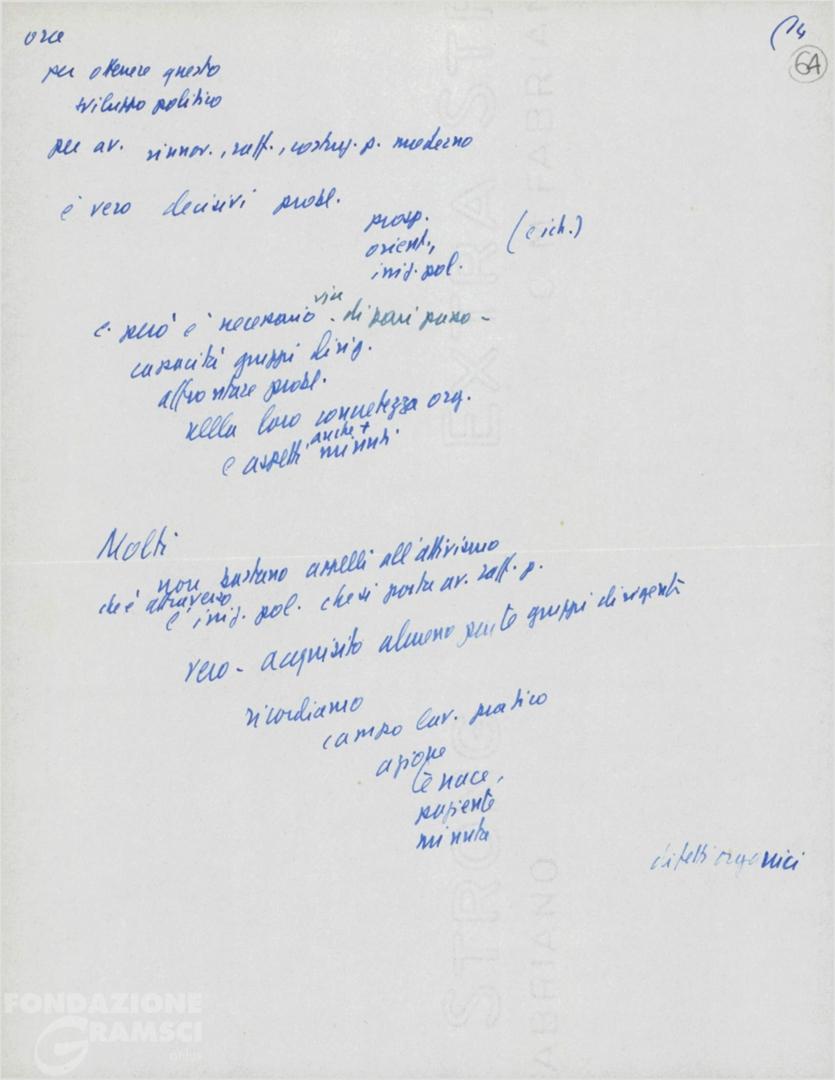 ora
(14
64
per ottenere questo
sviluppo politico
per av. rinnov., raff., costruz. p. moderno
è vero decisivi probl.
prosp.
orient.,
iniz. pol.
e però è necessario via di pari passo -
capacità gruppi dirig.
affrontare probl.
nella loro concretezza org.
e aspetti anche + minuti
Molti
non bastano appelli all'attivismo
che è attraverso
l'iniz. pol. che si porta av. raff. p.
vero - acquisito almeno per te gruppi dirigenti
ricordiamo
campo lav. pratico
azione
tenace,
paziente
minuta
difetti organici
EXTRA STR
C M FABRIAN
STRONG
FABRIANO
FONDAZIONE
GRAMSCI
onlus